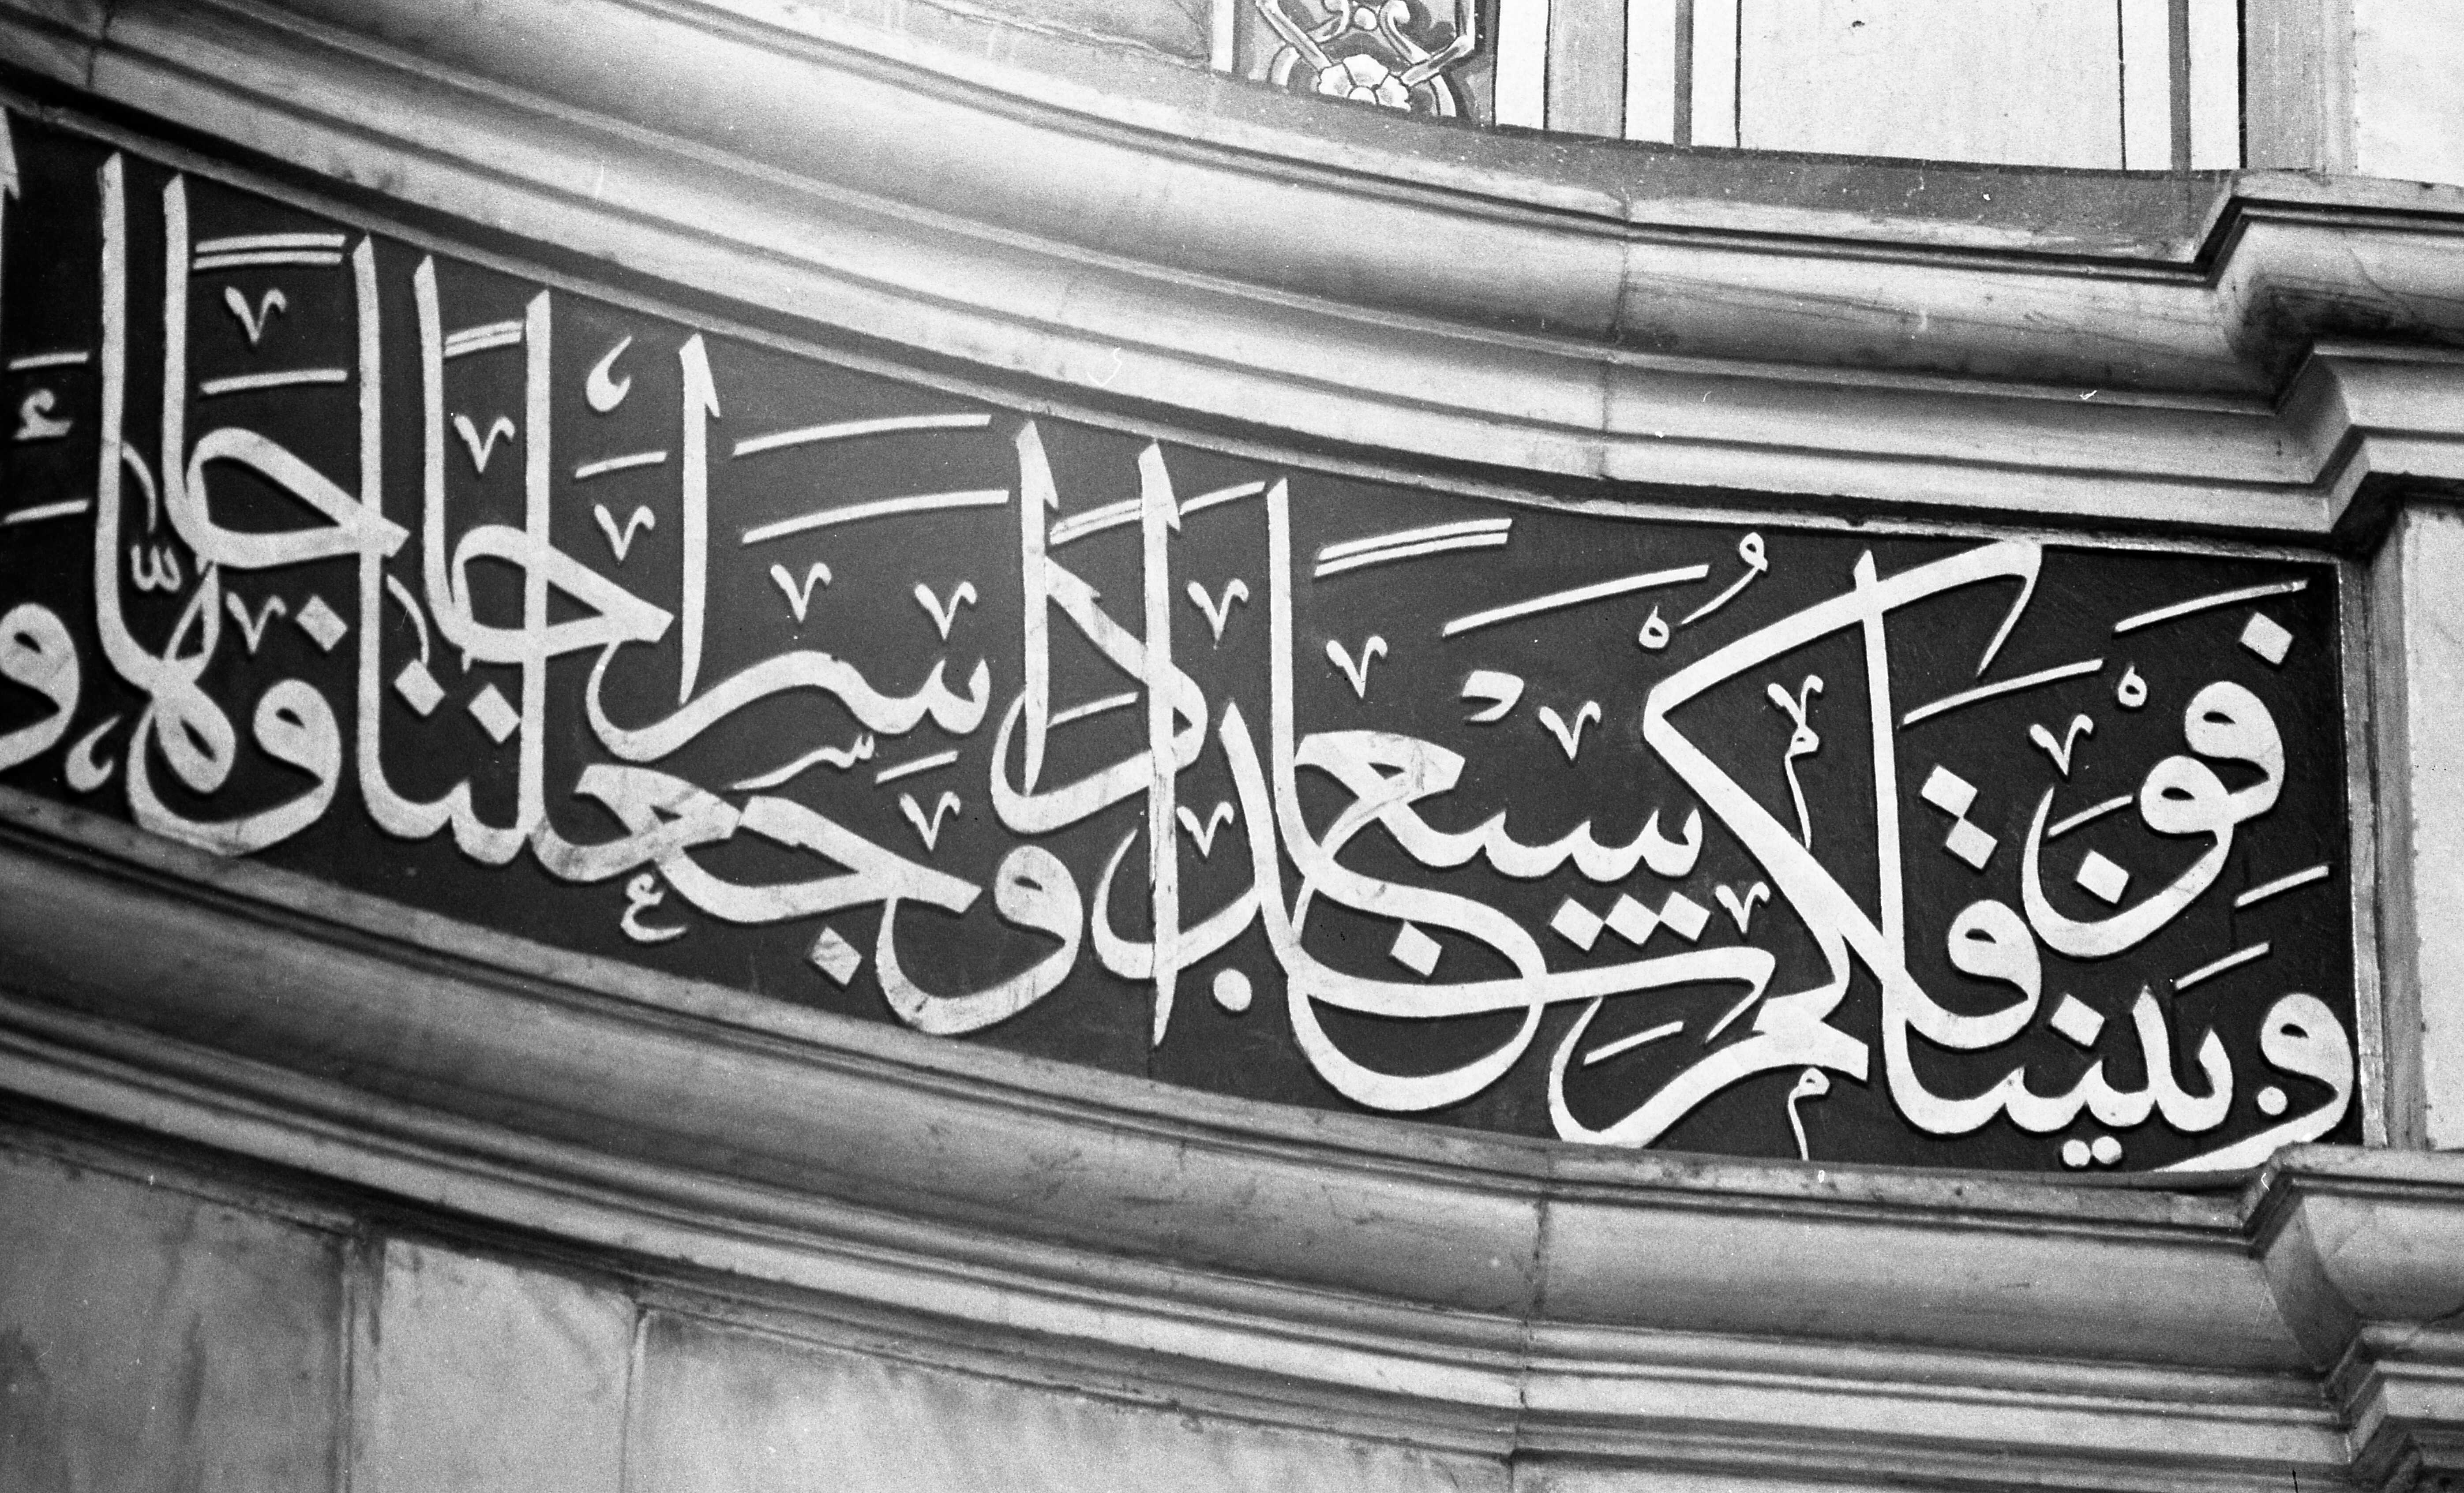 وبنينا فوقكم سبعا شدادا وجعلنا سراجا وهاجا